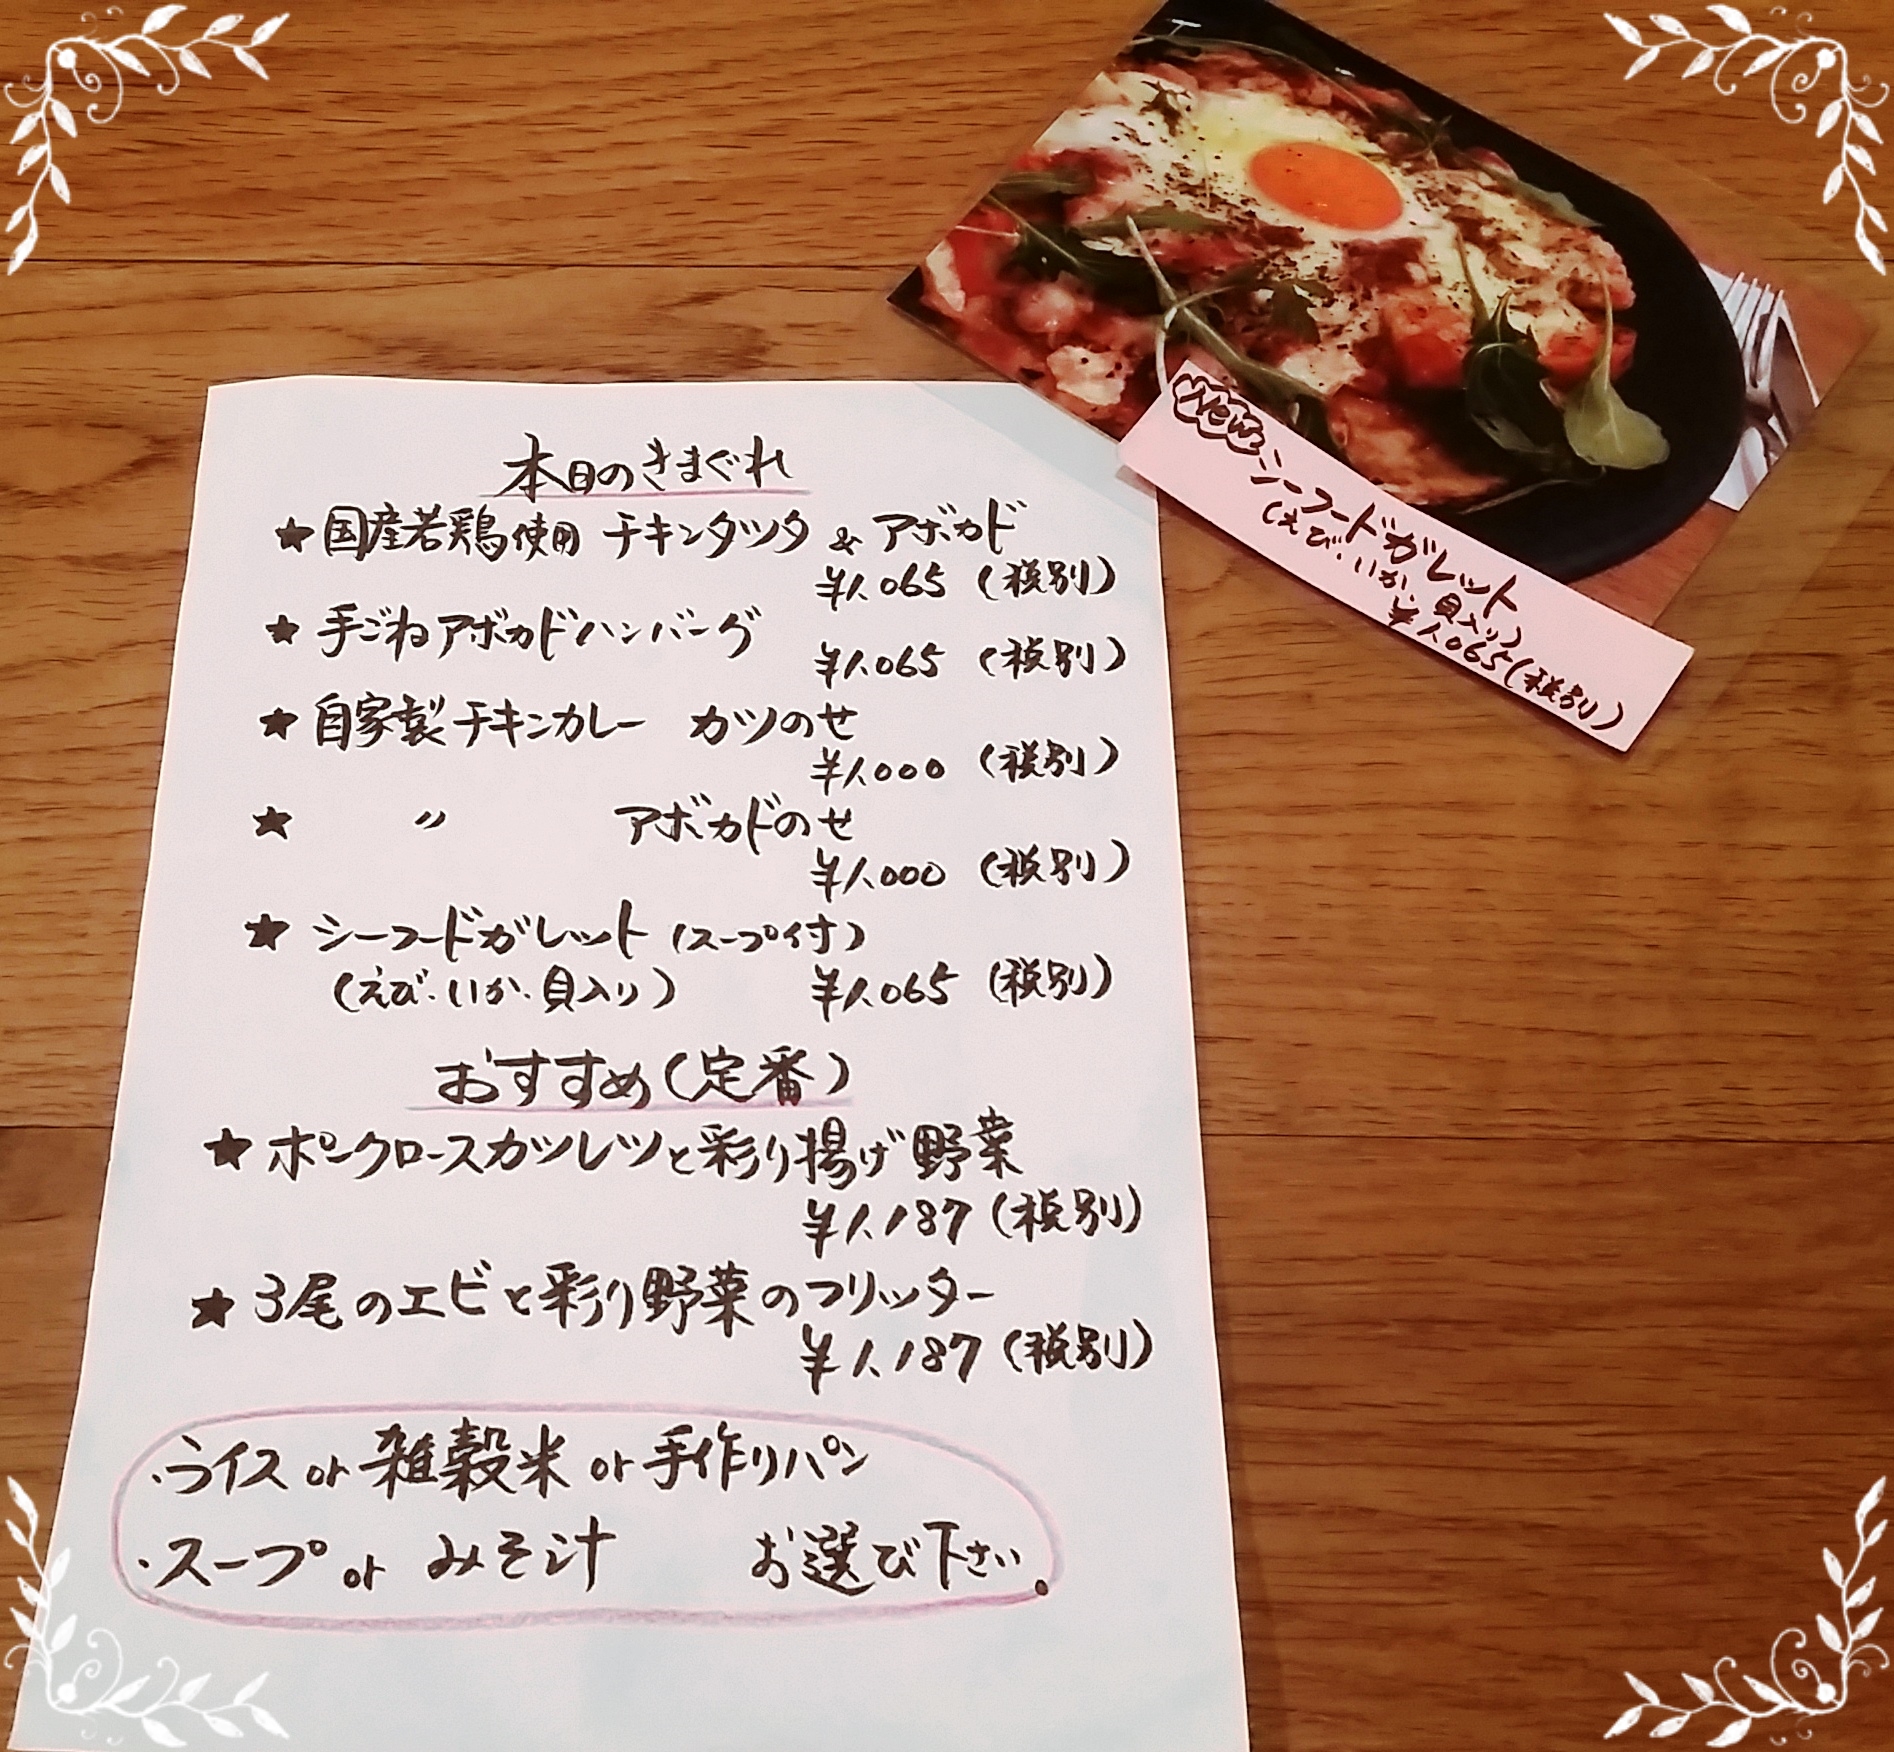 本日のきまぐれ
★国産若鶏使用 チキンタツタ & アボカド
¥1.065 (税別)
★手ごねアボカドハンバーグ
¥1.065 (税別)
★自家製チキンカレー カツのせ
¥1.000 (税別)
★ 〃 アボカドのせ
¥1.000 (税別)
★シーフードガレット (スープ付)
(えび・いか・貝入り) ¥1.065 (税別)
おすすめ(定番)
★ポークロースカツレツと彩り揚げ野菜
¥1.187 (税別)
★3尾のエビと彩り野菜のフリッター
¥1.187 (税別)
・ライス or 雑穀米 or 手作りパン
・スープ or みそ汁 お選び下さい。
New シーフードガレット
(えび・いか・貝入り)
¥1.065(税別)